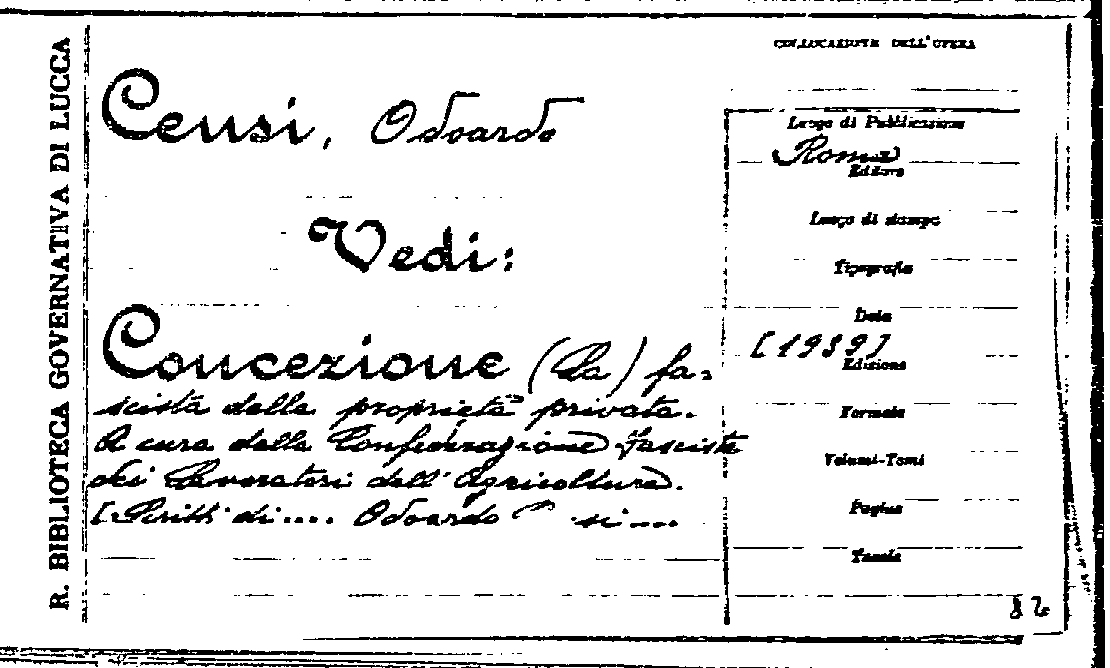 R. BIBLIOTECA GOVERNATIVA DI LUCCA
COLLOCAZIONE DELL'OPERA
Censi, Odoardo
Vedi:
Concezione (La) fa-
scista della proprietà privata.
A cura della Confederazione Fascista
dei Lavoratori dell'Agricoltura.
[Scritti di.... Odoardo si....
Luogo di Pubblicazione
Roma
Editore
Luogo di stampa
Tipografia
Data
[1939]
Edizione
Formato
Volumi-Tomi
Pagine
Tavole